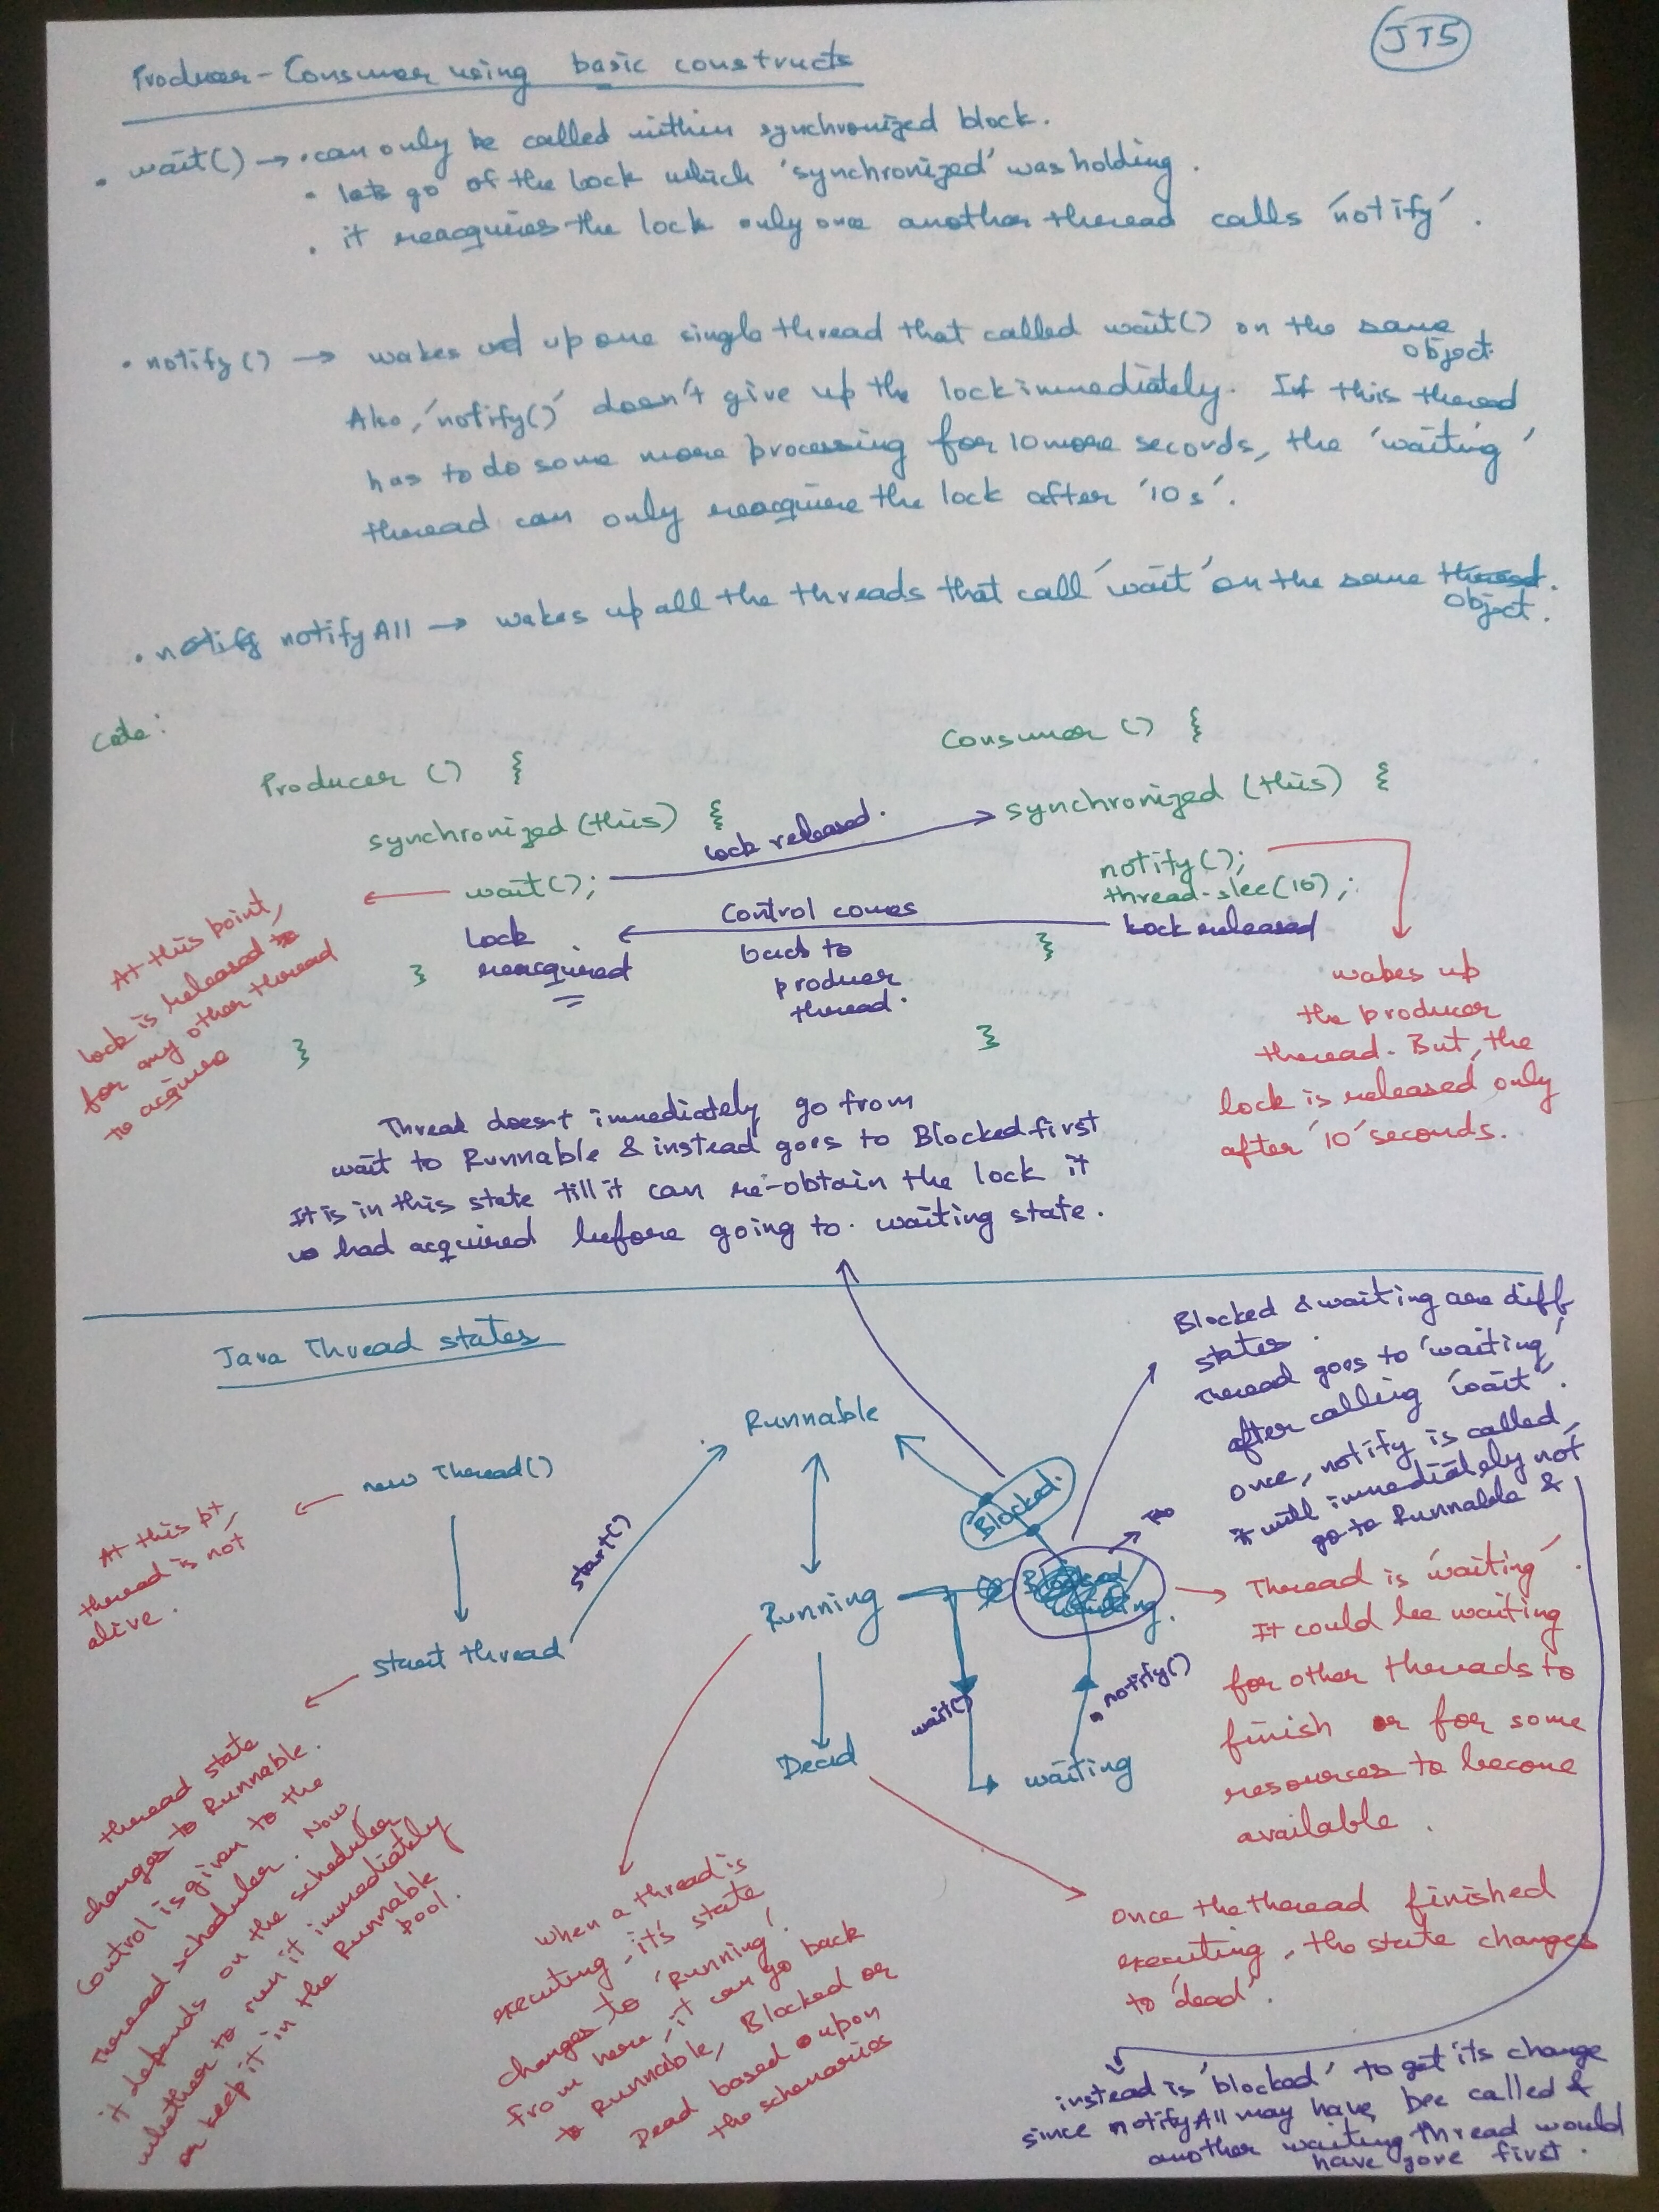 JT5
Producer-Consumer using basic constructs
• wait() → • can only be called within synchronized block.
• lets go of the lock which 'synchronized' was holding.
• it reacquires the lock only once another thread calls 'notify'.
• notify() → wakes up one single thread that called wait() on the same
object.
Also, 'notify()' doesn't give up the lock immediately. If this thread
has to do some more processing for 10 more seconds, the 'waiting'
thread can only reacquire the lock after '10s'.
• notify notifyAll → wakes up all the threads that call 'wait' on the same thread.
object.
Code:
Producer () {
synchronized (this) {
wait();
Lock
reacquired
}
}
lock released.
Control comes
back to
producer
thread.
Consumer () {
synchronized (this) {
notify();
thread.slee(10);
Lock released
}
}
At this point,
lock is released to
for any other thread
to acquire
wakes up
the producer
thread. But, the
lock is released only
after '10' seconds.
Thread doesnt immediately go from
wait to Runnable & instead goes to Blocked first
It is in this state till it can re-obtain the lock it
had acquired before going to waiting state.
Java Thread states
new Thread()
At this pt,
thread is not
alive.
start thread
start()
thread state
changes to Runnable.
Control is given to the
Thread scheduler. Now,
it depends on the scheduler
whether to run it immediately
or keep it in the Runnable
pool.
Runnable
Running
Dead
Blocked
wait()
waiting
notify()
Blocked & waiting are diff
states.
Thread goes to 'waiting'
after calling 'wait'.
once, notify is called,
it will immediately not
go to Runnable &
Thread is 'waiting'.
It could be waiting
for other threads to
finish or for some
resources to become
available.
When a thread is
executing, it's state
changes to 'Running'.
From here, it can go back
to Runnable, Blocked or
Dead based upon
the schenarios
Once the thread finished
executing, the state changes
to 'dead'.
instead is 'blocked' to get its change
since notifyAll may have bee called &
another waiting thread would
have gone first.